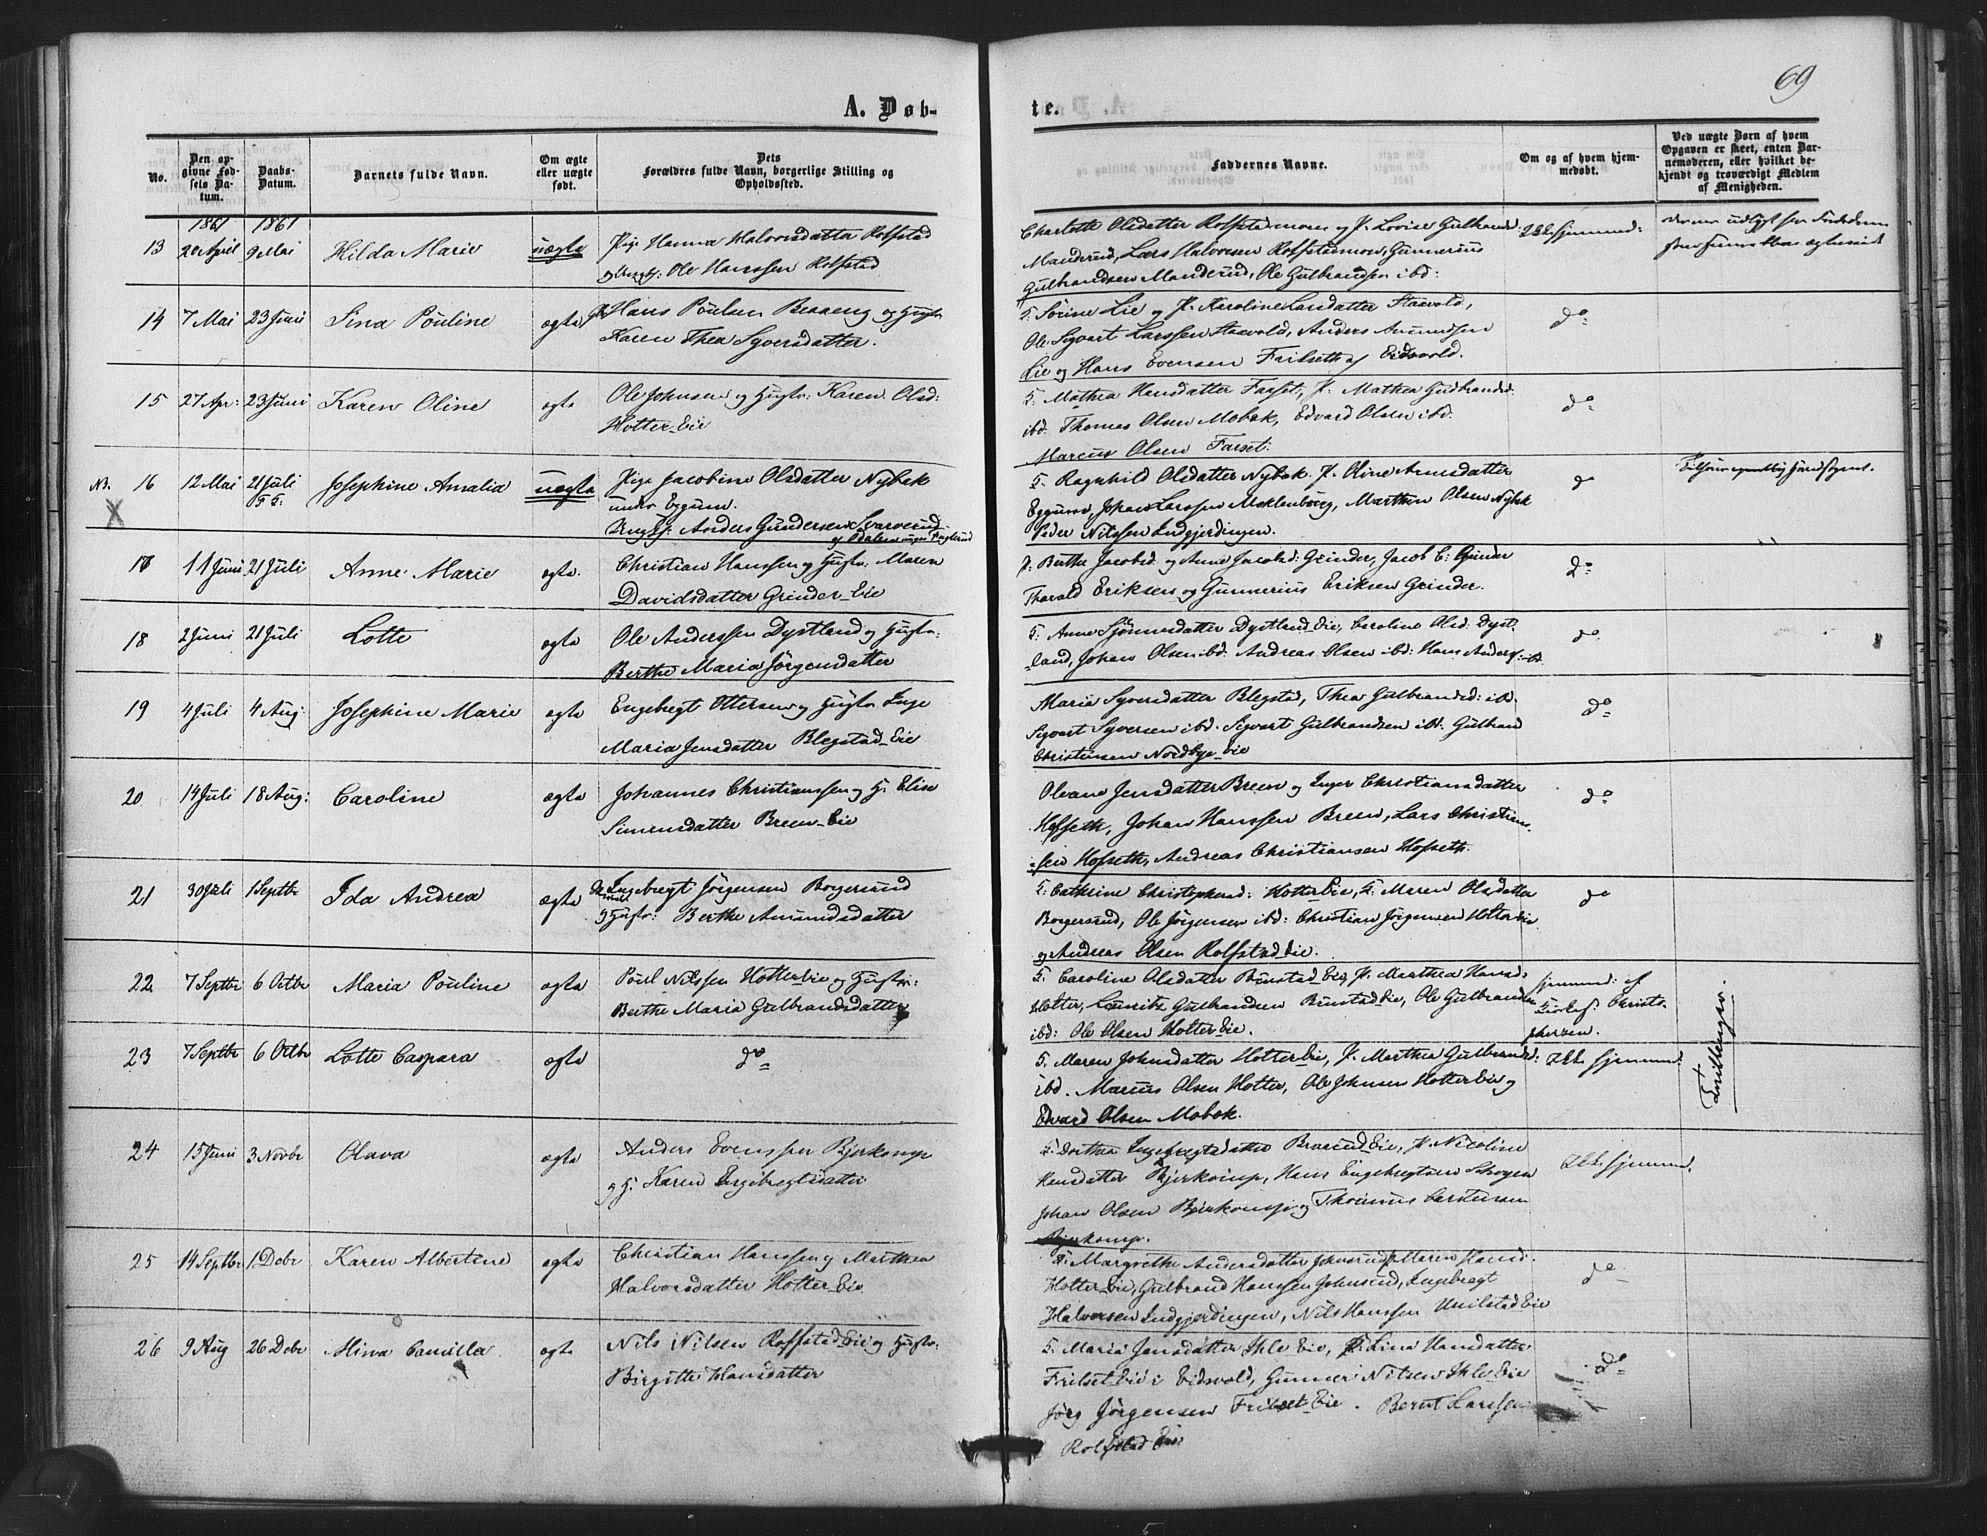 69
A. Døb-
te.
No.
Den op-
givne Fød-
sels Da-
tum.
Daabs-
Datum.
Barnets fulde Navn.
Om ægte
eller uægte
født.
Dets
Forældres fulde Navn, borgerlige Stilling og
Opholdssted.
Faddernes Navne.
Om og af hvem hjem-
medøbt.
Ved uægte Børn af hvem
Opgaven er skeet, enten Bar-
nemoderen, eller hvilket be-
kjendt og troværdigt Medlem
af Menigheden.
1861 1861
13 20 April 9 Mai Hilda Marie uægte Pige Hanna Halvorsdatter Rolfstad
Ole Hanssen Rolfstad
Charlotte Olsdatter Rolfstadmoen og P. Lovise Gulbrandsd:
Manderud, Lars Halvorsen Rolfstadmoen, Gunnerius
Gulbrandsen Manderud, Ole Gulbrandsen ibd:
Ikke hjemmed:
14 7 Mai 23 Juni Lina Pouline ægte Hans Poulsen Berreng og Hustr.
Karen Thea Syversdatter.
G. Sörine Lie og P. Karoline Larsdatter Staxvold,
Ole Sigvart Larssen Staxvold, Anders Amundsen
Lie og Hans Evensen Frilseth af Eidsvold.
do
15 27 Apr: 23 Juni Karen Oline ægte Ole Johnsen og Hustr: Karen Olsd:
Hotter Eie
G. Mathea Hansdatter Farset, P. Mathea Gudbrandsd:
ibd. Thomas Olsen Mobæk, Edvard Olsen ibd.
Marcus Olsen Farset.
do
NB. 16 12 Mai 21 Juli Josephine Amalia uægte Pige Jacobine Olsdatter Nybak
under Eggum.
Ungk: Anders Gundersen Svarverud
G. Ragnhild Olsdatter Nybak P. Oline Arnesdatter
Eggum, Johan Larssen Meklenborg, Marthin Olsen Nybak
Peder Nilssen Indgjerdingen.
do
X
17 11 Juni 21 Juli Anne Marie ægte. Christian Hanssen og Hustr. Maren
Davidsdatter Grinder Eie
P. Berthe Jacobsd. og Anne Jacobsd: Grinder, Jacob C: Grinder
Tharald Eriksen og Gunnerius Eriksen Grinder.
do
18 2 Juni 21 Juli Lotte ægte Ole Anderssen Dystland og Hustr.
Berthe Maria Jörgensdatter
G. Anne Sjönnesdatter Dystland Eie, Caroline Olsd. Dyst-
land, Johan Olsen ibd: Andreas Olsen ibd: Hans Anders: ibd.
do
19 4 Juli 4 Aug: Josephine Marie ægte Engebregt Ottersen og Hustr. Inge
Maria Jensdatter Blegstad Eie
Maria Syversdatter Blegstad, Thea Gulbrandsd: ibd.
Sigvart Syversen ibd. Sigvart Gulbrandsen ibd. Gulbrand
Christensen Nordbye Eie
do
20 14 Juli 18 Aug: Caroline ægte Johannes Christianssen og H. Elise
Simensdatter Breen Eie
Oleane Jensdatter Breen og Inger Christiansdatter
Hofseth, Johan Hanssen Breen, Lars Christian-
sen Hofseth, Andreas Christiansen Hofseth.
do
21 30 Juli 1 Septbr Ida Andrea ægte Ingebregt Jörgensen Bogersrud
og Hustr: Berthe Amundsdatter
G. Cathrine Christophersd: Hotter Eie, G. Maren Olsdatter
Bogersrud, Ole Jörgensen ibd: Christian Jörgensen Hotter Eie
og Andreas Olsen Rolfstad Eie.
do
22 7 Septbr 6 Octbr Maria Pouline ægte Poul Nilssen Hotter Eie og Hustr:
Berthe Maria Gulbrandsdatter
G. Caroline Olsdatter Bunstad Eie, P. Marthea Hansd:
Hotter, Lauritz Gulbrandsen Bunstad Eie, Ole Gulbrandsen
ibd: Ole Olsen Hotter Eie.
hjemmed: af
Christo-
phersen.
23 7 Septbr 6 Octbr Lotte Caspara ægte do
G. Maren Johnsdatter Hotter Eie, P. Marthea Gulbrandsd:
ibd. Marius Olsen Hotter, Ole Johnsen Hotter Eie og
Edvard Olsen Mobæk.
Ikke hjemmed.
Tvillinger.
24 15 Juni 3 Novbr Olava ægte Anders Evenssen Bjerkomp
og H. Karen Engebregtsdatter
G. Dorthea Ingebregtsdatter Brarud Eie, P. Nicoline
Hansdatter Bjerkomp, Hans Engebregtsen Schogen
Johan Olsen Bjerkomp og Thomas Carstensen
Bjerkomp.
Ikke hjemmed.
25 14 Septbr 1 Decbr Karen Albertine ægte Christian Hanssen og Marthea
Halvorsdatter Hotter Eie
G. Margrethe Andersdatter Johnsrud P. Maren Hansd.
Hotter Eie, Gulbrand Hanssen Johnsrud, Ingebregt
Halvorsen Indgjerdingen, Nils Hanssen Unilstad Eie
do
26 9 Aug 26 Decbr Mina Camilla ægte Nils Nilsen Rolfstad Eie og Hustr.
Birgitte Hansdatter
G. Maria Jensdatter Ihle Eie, P. Lina Hansdatter
Frilset Eie i Eidsvold, Gunner Nilsen Ihle Eie
Jörg Jörgensen Frilset Eie. Bernt Larssen
Rolfstad Eie
do